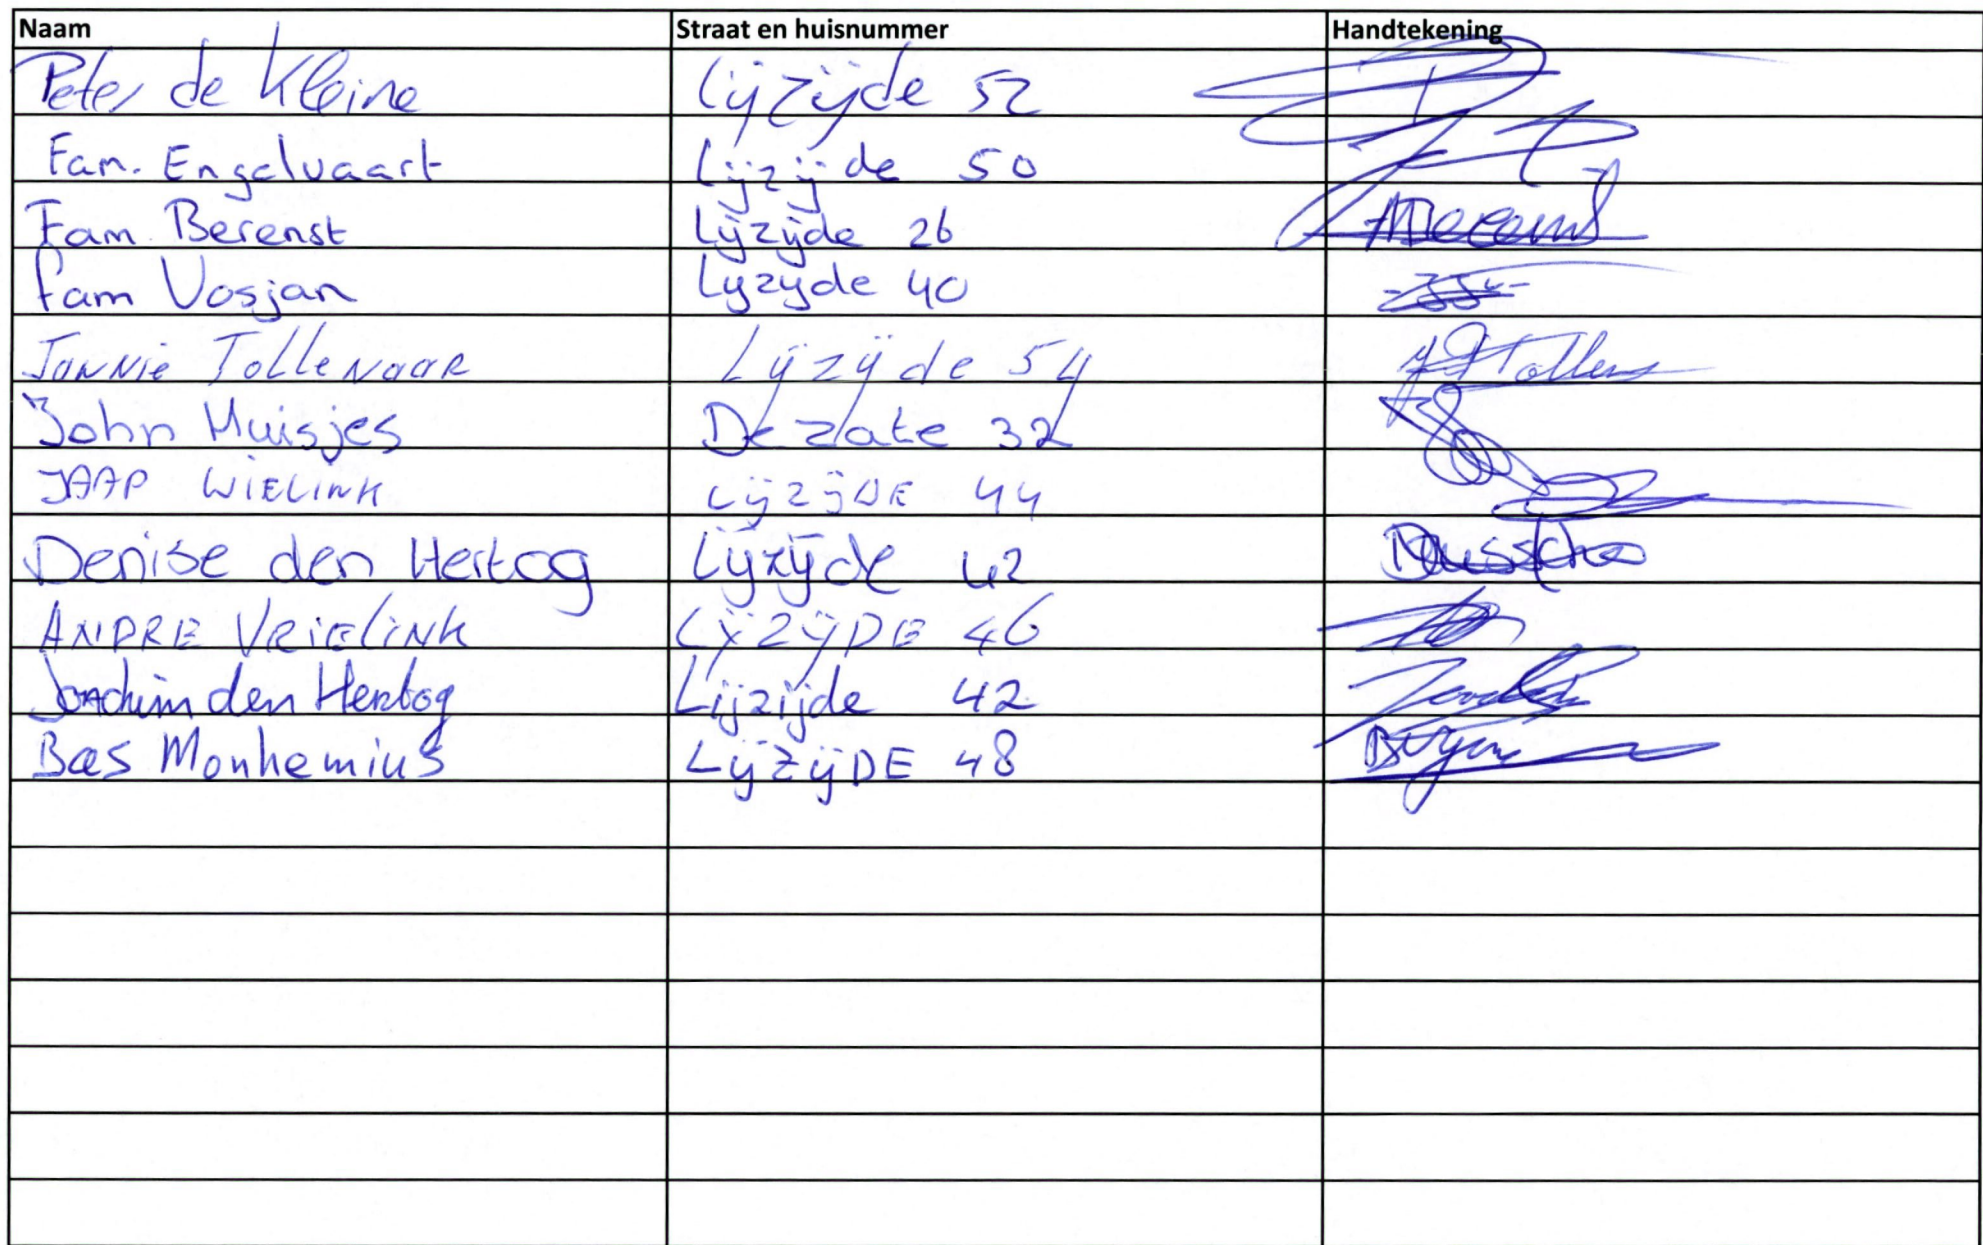 Naam Straat en huisnummer Handtekening
Peter de Kleine Lijzijde 52
Fam. Engelvaart Lijzijde 50
Fam Berenst Lijzijde 26
fam Vosjan Lyzyde 40
Jannie Tollenaar Lijzijde 54
John Muisjes De Zate 32
JAAP WIELINK LijzijDE 44
Denise den Hertog Lijzijde 42
ANDRE VRIELINK LijZijDE 46
Joachim den Hertog Lijzijde 42
Bas Monhemius LijZijDE 48